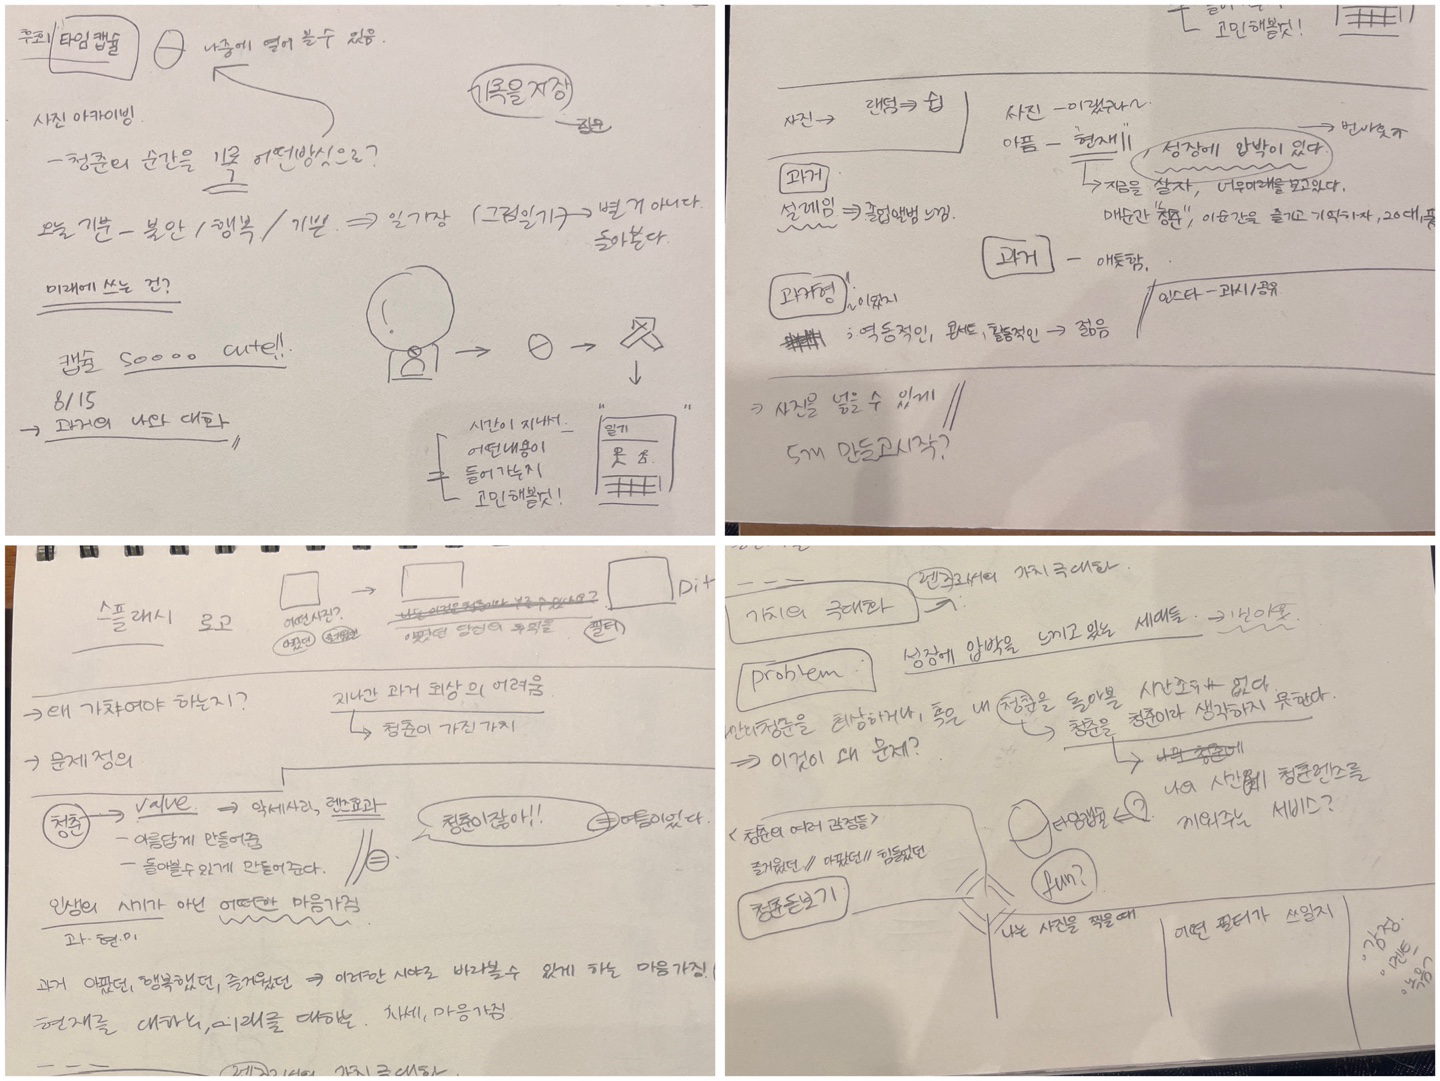 타임캡슐
나중에 열어 볼 수 있음.
기록을 저장
사진 아카이빙
- 청춘의 순간을 기록 어떤방식으로?
오늘 기분 - 불안 / 행복 / 기쁨 ⇒ 일기장 (그림일기) → 별 거 아니다.
돌아본다.
미래에 쓰는 건?
캡슐 soooo cute!!
8/15
→ 과거의 나와 대화
시간이 지나서
어떤내용이
들어가는지
고민해볼것!
일기
고민해볼것!
사진 → 랜덤 ⇒ 쉽
사진 - 이랬구나~
아픔 - "현재"
성장에 압박이 있다.
→ 번아웃
→ 지금을 살자, 너무미래를보고있다.
매순간 "청춘", 이순간을 즐기고 기억하자, 20대,
과거
설레임 ⇒ 졸업앨범 느낌.
과거 - 애틋함.
과거형
~이었지
; 역동적인, 콘서트, 활동적인 → 젊음
인스타 - 과시/공유
→ 사진을 넣을 수 있게
5개 만들고시작?
스플래시 로고
어떤사진?
아팠던
아팠던 당신의 추억을
필터
→ 왜 가져야 하는지?
지나간 과거 회상의 어려움
→ 청춘이 가진 가치
→ 문제정의
청춘 → value ⇒ 악세사리, 렌즈효과
- 아름답게 만들어줌
- 돌아볼수있게 만들어준다.
청춘이잖아!!
여름이었다.
인생의 시기가 아닌 어떠한 마음가짐
과·현·미
과거 아팠던, 행복했던, 즐거웠던 ⇒ 이러한 시야로 바라볼수 있게 하는 마음가짐
현재를 대하는, 미래를 대하는 자세, 마음가짐
렌즈로서의 가치 극대화
렌즈로서의 가치 극대화.
가치의 극대화
성장에 압박을 느끼고 있는 세대들. → 번아웃
problem
청춘을 회상하거나, 혹은 내 청춘을 돌아볼 시간조차 없다.
→ 청춘을 청춘이라 생각하지 못한다.
⇒ 이것이 왜 문제?
나의 시간에 청춘렌즈를
끼워주는 서비스?
타임캡슐 ← ?
<청춘의 여러 감정들>
즐거웠던 // 아팠던 // 힘들었던
fun?
청춘돋보기
나는 사진을 찍을 때
어떤 필터가 쓰일지
감정.
멘트